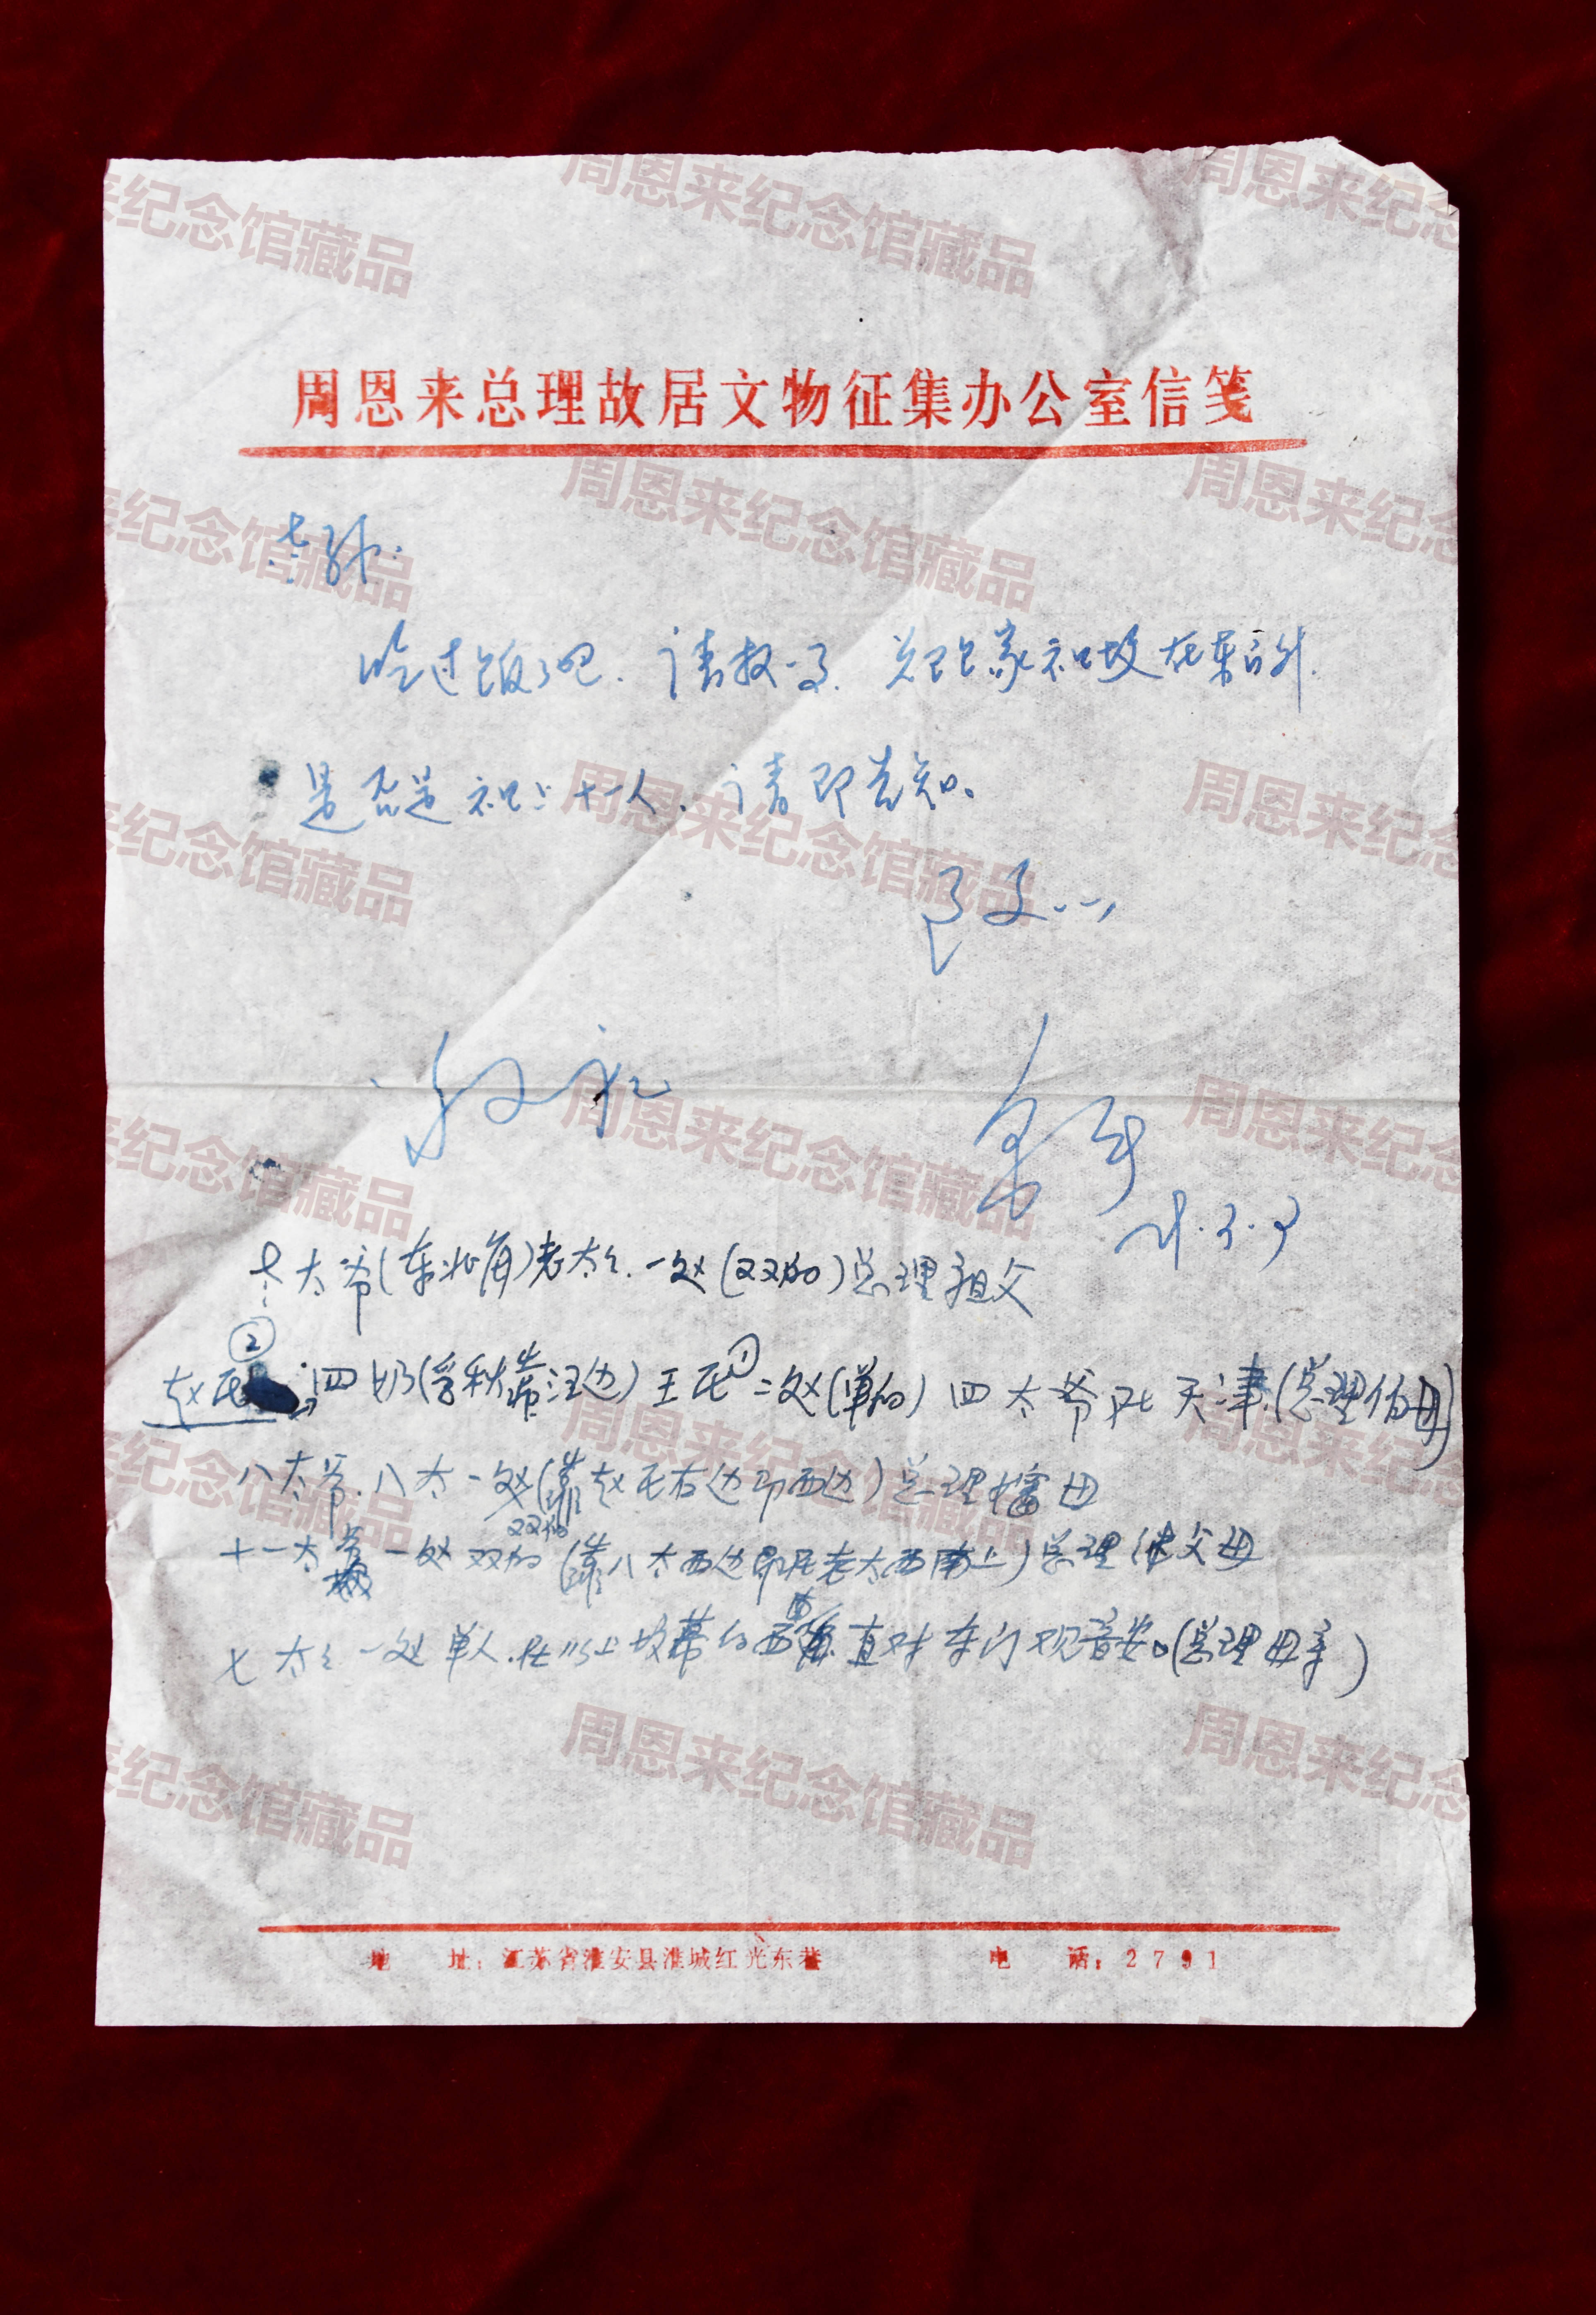 周恩来总理故居文物征集办公室信笺
吃过饭了吧. 请教一事. 总理家祖坟在东门外.
是否是祖上十一人. 请即告知.
敬礼
七太爷(东北角)老太太. 一处(双的)总理祖父
②
赵氏 四奶(穿秋靠汪边)王氏① 二处(单的) 四太爷死天津.(总理伯母)
八太爷.八太一处(靠赵氏右边即西边)总理婶母
双的
十一太爷 一处双的(靠八太西边即在老太西南上)总理 父母
七太太一处单人.在以上坟幕的西 直对东门观音 (总理母亲)
地 址: 江苏省淮安县淮城红光东巷 电 话: 2791
周恩来纪念馆藏品